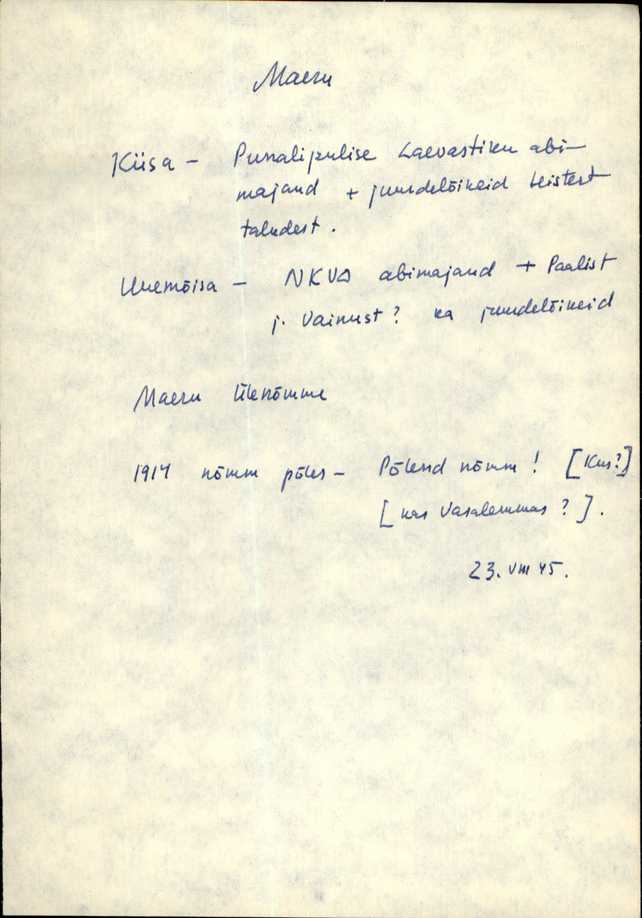 Maeru
Kiisa – Punalipulise Laevastiku abi-
majand + juurdelõikeid teistest
taludest.
Uuemõisa – NKVD abimajand + Paalist
j. Vainust? ka juurdelõikeid
Maeru Ülenõmme
1914 nõmm põles – Põlend nõmm! [Kus?]
[kas Vasalemmas?].
23. VIII 45.